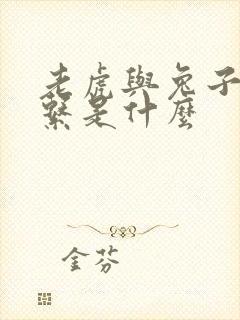 老虎與兔子
繫是什麼
金芬